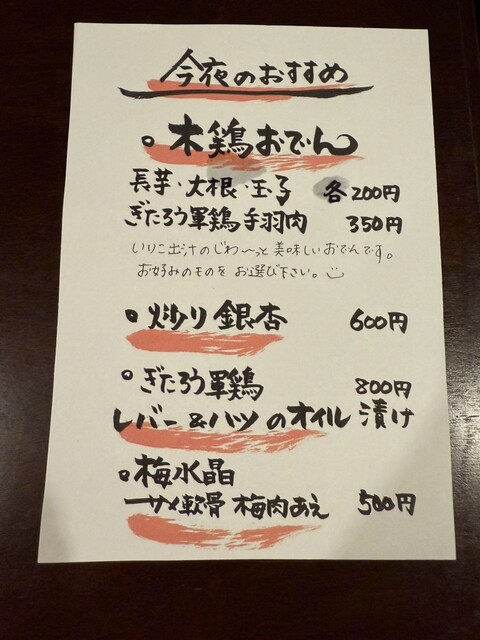 今夜のおすすめ
○木鶏おでん
長芋・大根・玉子 各200円
ぎたろう軍鶏手羽肉 350円
いりこ出汁のじわ〜っと美味しいおでんです。
お好みのものをお選び下さい。☺
○炒り銀杏 600円
○ぎたろう軍鶏 800円
レバー&ハツのオイル漬け
○梅水晶
ーサメ軟骨 梅肉あえ 500円